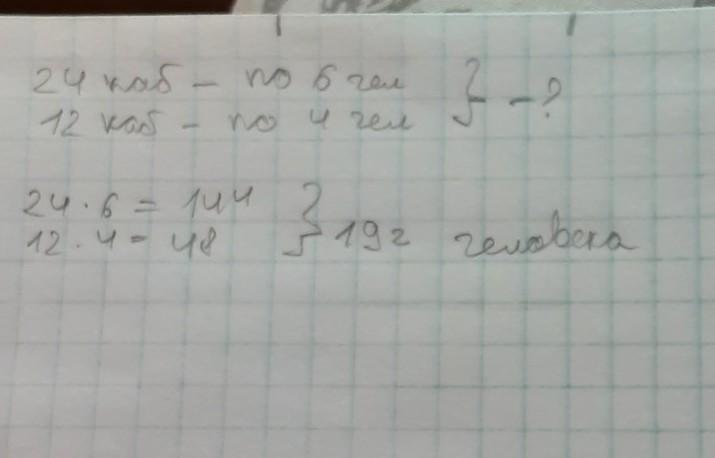 24 каб - по 6 чел } - ?
12 каб - по 4 чел
24 · 6 = 144 } 192 человека
12 · 4 = 48